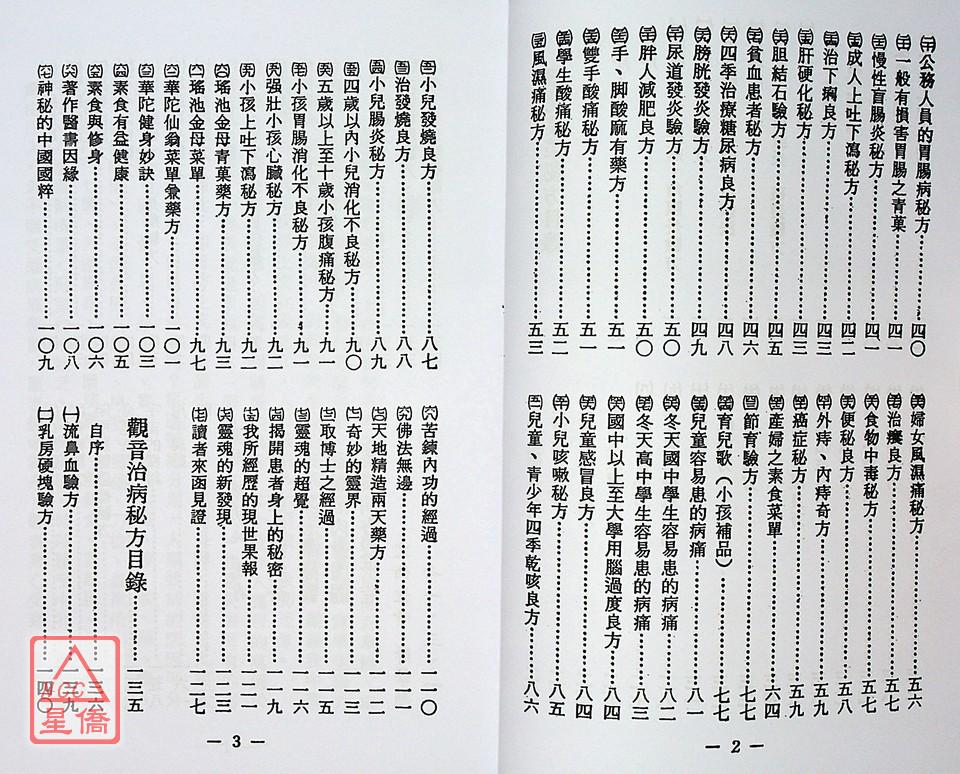 公務人員的胃腸病秘方……四〇
一般有損害胃腸之青菓……四一
慢性盲腸炎秘方……四一
成人上吐下瀉秘方……四二
治下痢良方……四三
肝硬化秘方……四三
胆結石驗方……四五
貧血患者秘方……四六
四季治療糖尿病良方……四八
膀胱發炎驗方……四九
尿道發炎驗方……五〇
胖人減肥良方……五〇
手、脚酸麻有藥方……五一
雙手酸痛秘方……五一
學生酸痛秘方……五二
風濕痛秘方……五三
婦女風濕痛秘方……五六
治癢良方……五七
食物中毒秘方……五七
便秘良方……五八
外痔、內痔奇方……五九
癌症秘方……五九
產婦之素食菜單……六四
節育驗方……七七
育兒歌（小孩補品）……七七
兒童容易患的病痛……八一
冬天國中學生容易患的病痛……八二
冬天高中學生容易患的病痛……八三
國中以上至大學用腦過度良方……八四
兒童感冒良方……八四
小兒咳嗽秘方……八五
兒童、青少年四季乾咳良方……八六
— 2 —
小兒發燒良方……八七
治發燒良方……八八
小兒腸炎秘方……八九
四歲以內小兒消化不良秘方……九〇
五歲以上至十歲小孩腹痛秘方……九一
小孩胃腸消化不良秘方……九一
强壯小孩心臟秘方……九二
小孩上吐下瀉秘方……九二
瑤池金母青菓藥方……九三
瑤池金母菜單……九七
華陀仙翁菜單兼藥方……一〇一
華陀健身妙訣……一〇三
素食有益健康……一〇五
素食與修身……一〇六
著作醫書因緣……一〇八
神秘的中國國粹……一〇九
苦練內功的經過……一一〇
佛法無邊……一一一
天地精造兩天藥方……一一二
奇妙的靈界……一一三
取博士之經過……一一五
靈魂的超覺……一一六
揭開患者身上的秘密……一一九
我所經歷的現世果報……一二一
靈魂的新發現……一二三
讀者來函見證……一二七
觀音治病秘方目錄……一三五
自序……一三六
㈠流鼻血驗方……一三九
㈡乳房硬塊驗方……一四〇
— 3 —
星僑